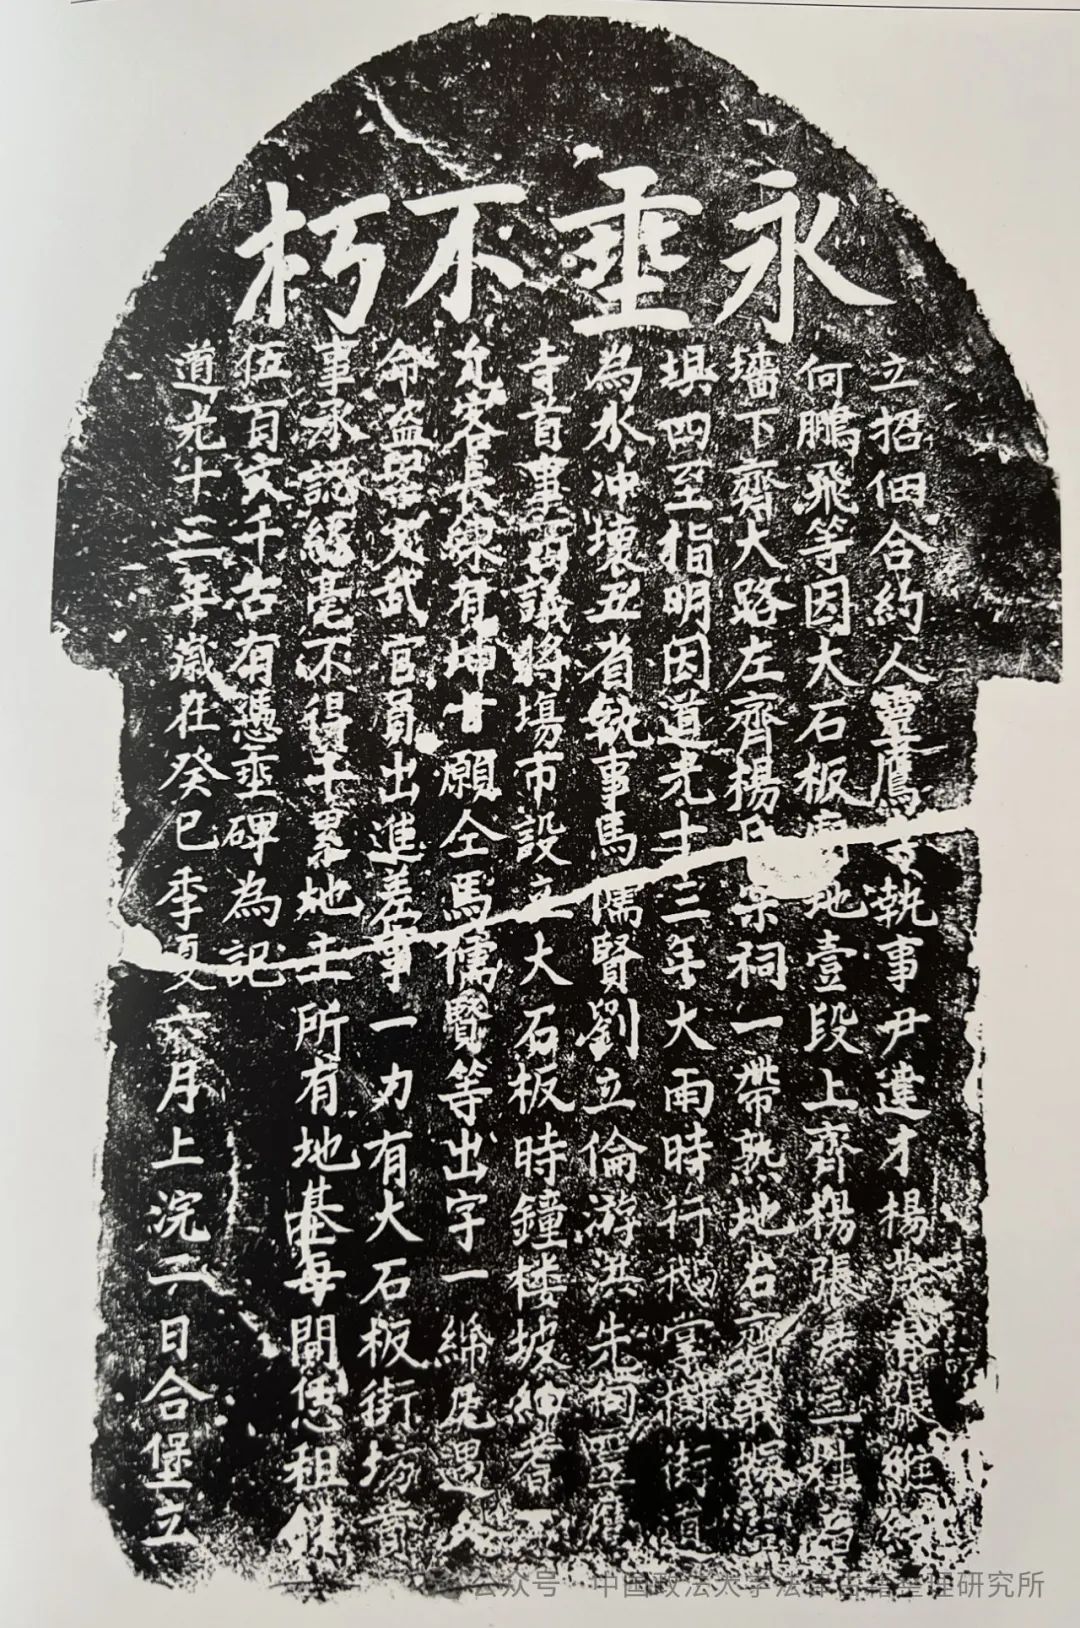 永垂不朽
立招佃合約人覃鷹 執事尹達才楊 張維
何鵬飛等因大石板 地壹段上齊楊張 三姓
墻下齊大路左齊楊氏宗祠一帶熟地右齊義
垻四至指明因道光十三年大雨時行 街道
為水冲壞五省執事馬儒賢劉立倫游洪先
寺首事啇議將塲市設立大石板時鐘楼坡紳耆
允客長陳有坤甘願仝馬儒賢等出字一 遇人
命盗案文武官員出進差事一力有大石板街坊
事承認絲毫不得干累地主所有地基每間 租錢
伍百文千古有憑垂碑為記
道光十三年歲在癸巳季夏六月上浣二日合堡立
公众号 中国政法大学法律古籍整理研究所